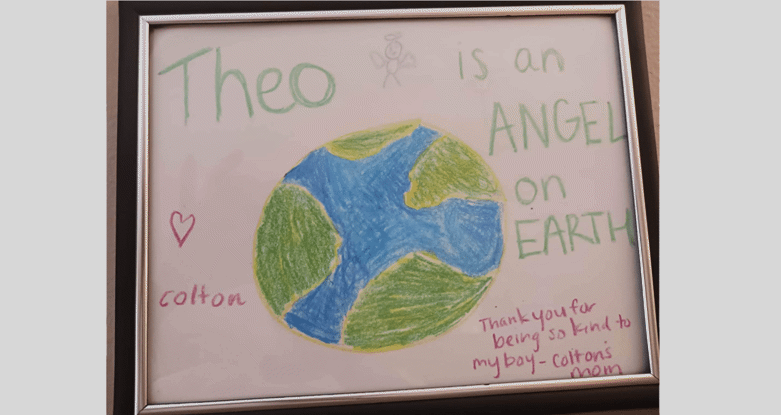 Theo is an
ANGEL
on
EARTH
♡
colton
Thank you for
being so kind to
my boy - Colton's
mom